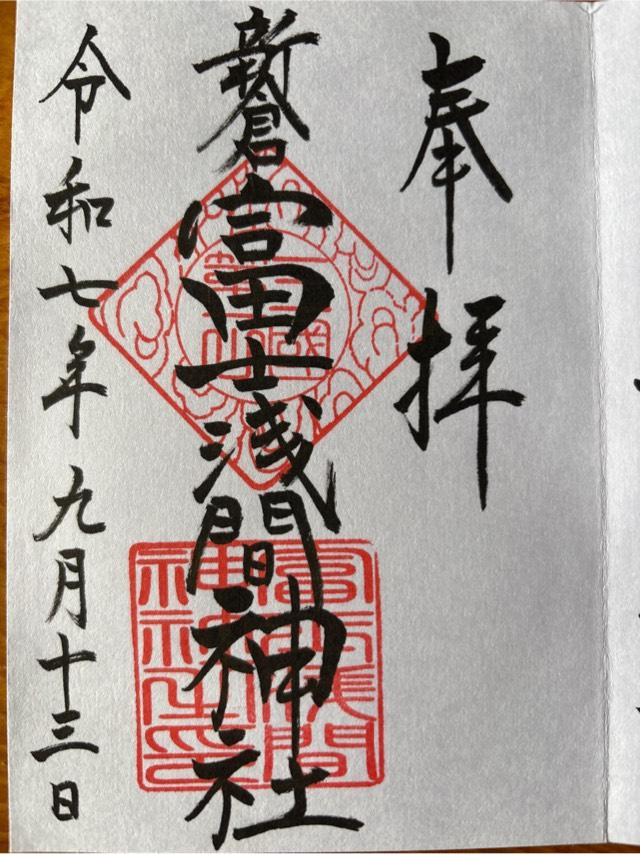 奉拝
新倉富士浅間神社
令和七年九月十三日